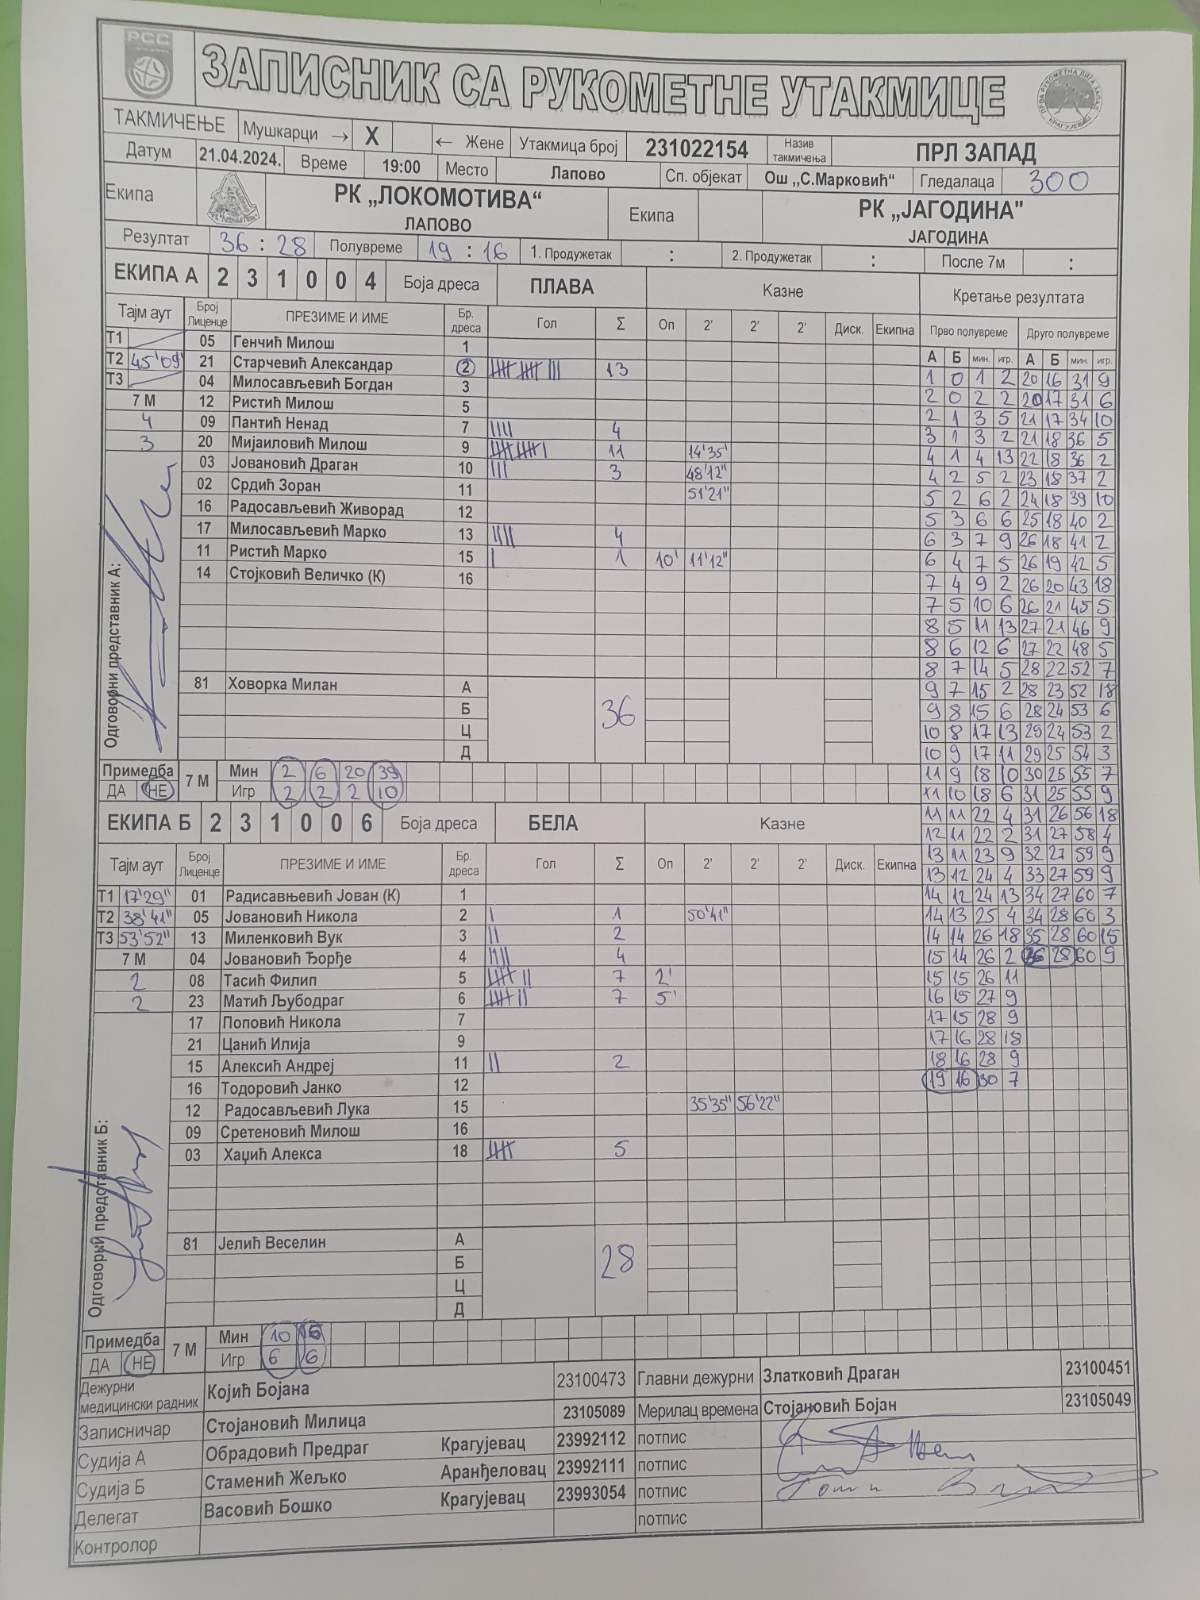 РСС
ЗАПИСНИК СА РУКОМЕТНЕ УТАКМИЦЕ
ТАКМИЧЕЊЕ Мушкарци → X ← Жене Утакмица број 231022154 Назив такмичења ПРЛ ЗАПАД
Датум 21.04.2024. Време 19:00 Место Лапово Сп. објекат Ош ,,С.Марковић“ Гледалаца 300
Екипа РК „ЛОКОМОТИВА“ ЛАПОВО Екипа РК „ЈАГОДИНА" ЈАГОДИНА
Резултат 36 : 28 Полувреме 19 : 16 1. Продужетак : 2. Продужетак : После 7м :
ЕКИПА А 2 3 1 0 0 4 Боја дреса ПЛАВА Казне Кретање резултата
Тајм аут Број Лиценце ПРЕЗИМЕ И ИМЕ Бр. дреса Гол Σ Оп 2' 2' 2' Диск. Екипна Прво полувреме Друго полувреме
А Б мин. игр. А Б мин. игр.
Т1 05 Генчић Милош 1
Т2 45'09" 21 Старчевић Александар 2 13
Т3 04 Милосављевић Богдан 3
7 М 12 Ристић Милош 5
4 09 Пантић Ненад 7 4
3 20 Мијаиловић Милош 9 11 14'35"
03 Јовановић Драган 10 3 48'12"
02 Срдић Зоран 11 51'21"
16 Радосављевић Живорад 12
17 Милосављевић Марко 13 4
11 Ристић Марко 15 1 10' 11'12"
14 Стојковић Величко (К) 16
81 Ховорка Милан А 36
Б
Ц
Д
Одговорни представник А:
Примедба ДА НЕ 7 М Мин 2 6 20 39
Игр 2 2 2 10
ЕКИПА Б 2 3 1 0 0 6 Боја дреса БЕЛА Казне
Тајм аут Број Лиценце ПРЕЗИМЕ И ИМЕ Бр. дреса Гол Σ Оп 2' 2' 2' Диск. Екипна
Т1 17'29" 01 Радисављевић Јован (К) 1
Т2 38'41" 05 Јовановић Никола 2 1 50'41"
Т3 53'52" 13 Миленковић Вук 3 2
7 М 04 Јовановић Ђорђе 4 4
2 08 Тасић Филип 5 7 2'
2 23 Матић Љубодраг 6 7 5'
17 Поповић Никола 7
21 Цанић Илија 9
15 Алексић Андреј 11 2
16 Тодоровић Јанко 12
12 Радосављевић Лука 15 35'35" 56'22"
09 Сретеновић Милош 16
03 Хаџић Алекса 18 5
81 Јелић Веселин А 28
Б
Ц
Д
Одговорни представник Б:
Примедба ДА НЕ 7 М Мин 10 15
Игр 6 6
1 0 1 2 20 16 31 9
2 0 2 2 20 17 31 6
2 1 3 5 21 17 34 10
3 1 3 2 21 18 36 5
4 1 4 13 22 18 36 2
4 2 5 2 23 18 37 2
5 2 6 2 24 18 39 10
5 3 6 6 25 18 40 2
6 3 7 9 26 18 41 2
6 4 7 5 26 19 42 5
7 4 9 2 26 20 43 18
7 5 10 6 26 21 45 5
8 5 11 13 27 21 46 9
8 6 12 6 27 22 48 5
8 7 14 5 28 22 52 7
9 7 15 2 28 23 52 18
9 8 15 6 28 24 53 6
10 8 17 13 29 24 53 2
10 9 17 11 29 25 54 3
11 9 18 10 30 25 55 7
11 10 18 6 31 25 55 9
11 11 22 4 31 26 56 18
12 11 22 2 31 27 58 4
13 11 23 9 32 27 59 9
13 12 24 4 33 27 59 9
14 12 24 13 34 27 60 7
14 13 25 4 34 28 60 3
14 14 26 18 35 28 60 15
15 14 26 2 36 28 60 9
15 15 26 11
16 15 27 9
17 15 28 9
17 16 28 18
18 16 28 9
19 16 30 7
Дежурни медицински радник Којић Бојана 23100473 Главни дежурни Златковић Драган 23100451
Записничар Стојановић Милица 23105089 Мерилац времена Стојановић Бојан 23105049
Судија А Обрадовић Предраг Крагујевац 23992112 потпис
Судија Б Стаменић Жељко Аранђеловац 23992111 потпис
Делегат Васовић Бошко Крагујевац 23993054 потпис
Контролор потпис